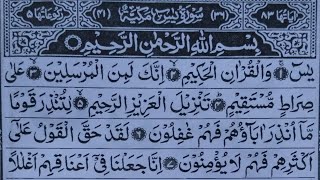 اٰیَاتُهَا ۸۳ (۳۶) سُوْرَةُ یٰسٓ مَكِّیَّةٌ (۴۱) رُكُوْعَاتُهَا ۵
بِسْمِ اللّٰهِ الرَّحْمٰنِ الرَّحِیْمِ
یٰسٓ ۱ وَالْقُرْاٰنِ الْحَكِیْمِ ۲ اِنَّكَ لَمِنَ الْمُرْسَلِیْنَ ۳ عَلٰى
صِرَاطٍ مُّسْتَقِیْمٍ ۴ تَنْزِیْلَ الْعَزِیْزِ الرَّحِیْمِ ۵ لِتُنْذِرَ قَوْمًا
مَّاۤ اُنْذِرَ اٰبَآؤُهُمْ فَهُمْ غٰفِلُوْنَ ۶ لَقَدْ حَقَّ الْقَوْلُ عَلٰۤى
اَكْثَرِهِمْ فَهُمْ لَا یُؤْمِنُوْنَ ۷ اِنَّا جَعَلْنَا فِیْۤ اَعْنَاقِهِمْ اَغْلٰلًا